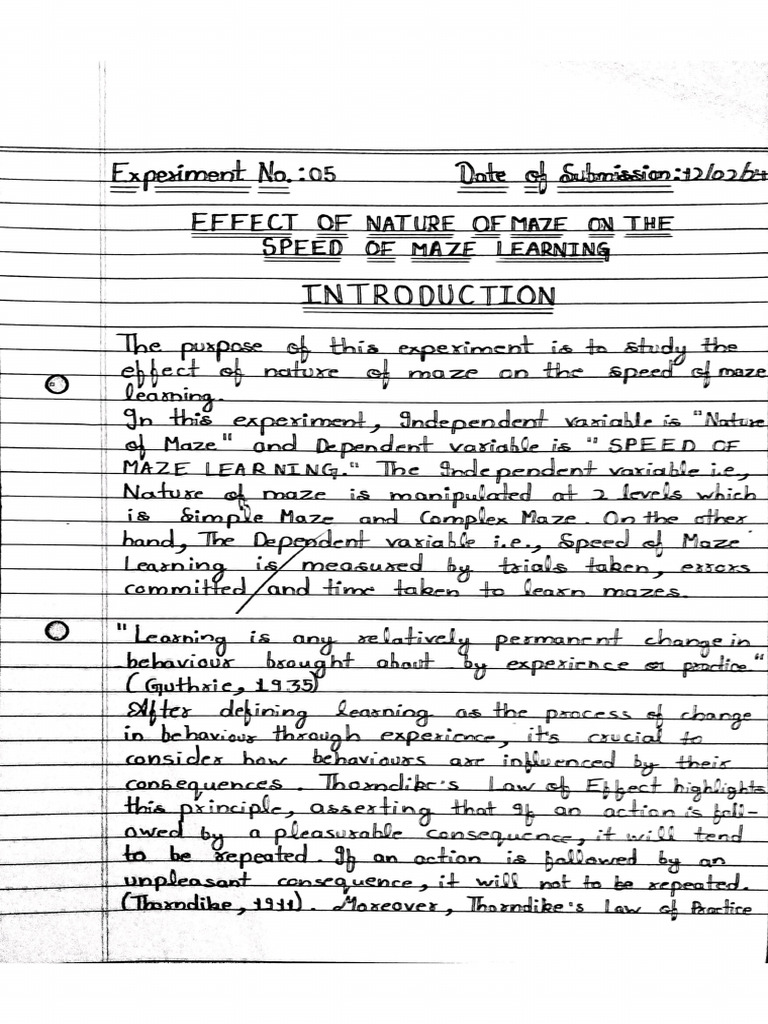 Experiment No.:05 Date of Submission:12/02/24
EFFECT OF NATURE OF MAZE ON THE
SPEED OF MAZE LEARNING
INTRODUCTION
The purpose of this experiment is to study the
effect of nature of maze on the speed of maze
learning.
In this experiment, Independent variable is "Nature
of Maze" and Dependent variable is " SPEED OF
MAZE LEARNING." The Independent variable i.e,
Nature of maze is manipulated at 2 levels which
is Simple Maze and Complex Maze. On the other
hand, The Dependent variable i.e., Speed of Maze
Learning is measured by trials taken, errors
committed and time taken to learn mazes.
"Learning is any relatively permanent change in
behaviour brought about by experience or practice"
(Guthrie, 1935)
After defining learning as the process of change
in behaviour through experience, it's crucial to
consider how behaviours are influenced by their
consequences. Thorndike's Law of Effect highlights
this principle, asserting that If an action is foll-
owed by a pleasurable consequence, it will tend
to be repeated. If an action is followed by an
unpleasant consequence, it will not to be repeated.
(Thorndike, 1911). Moreover, Thorndike's Law of Practice